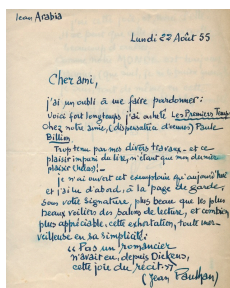 Jean Arabia
Lundi 22 Août 55
Cher ami,
j'ai un oubli à me faire pardonner :
Voici fort longtemps j'ai acheté Les Premiers Temps
chez notre amie, (dispensatrice d'heures) Paule
Billion.
Trop tenu par mes divers travaux - et ce
plaisir impuni du lire, n'étant que mon dernier
plaisir (hélas) -
je n'ai ouvert cet exemplaire qu'aujourd'hui
et j'ai lu d'abord, à la page de garde,
sous votre signature, plus beau que les plus
beaux voiliers des salons de lecture, et combien
plus appréciable, cette exhortation, toute mer-
veilleuse en sa simplicité :
"Pas un romancier
n'avait eu, depuis Dickens,
cette joie du récit."
(Jean Paulhan)